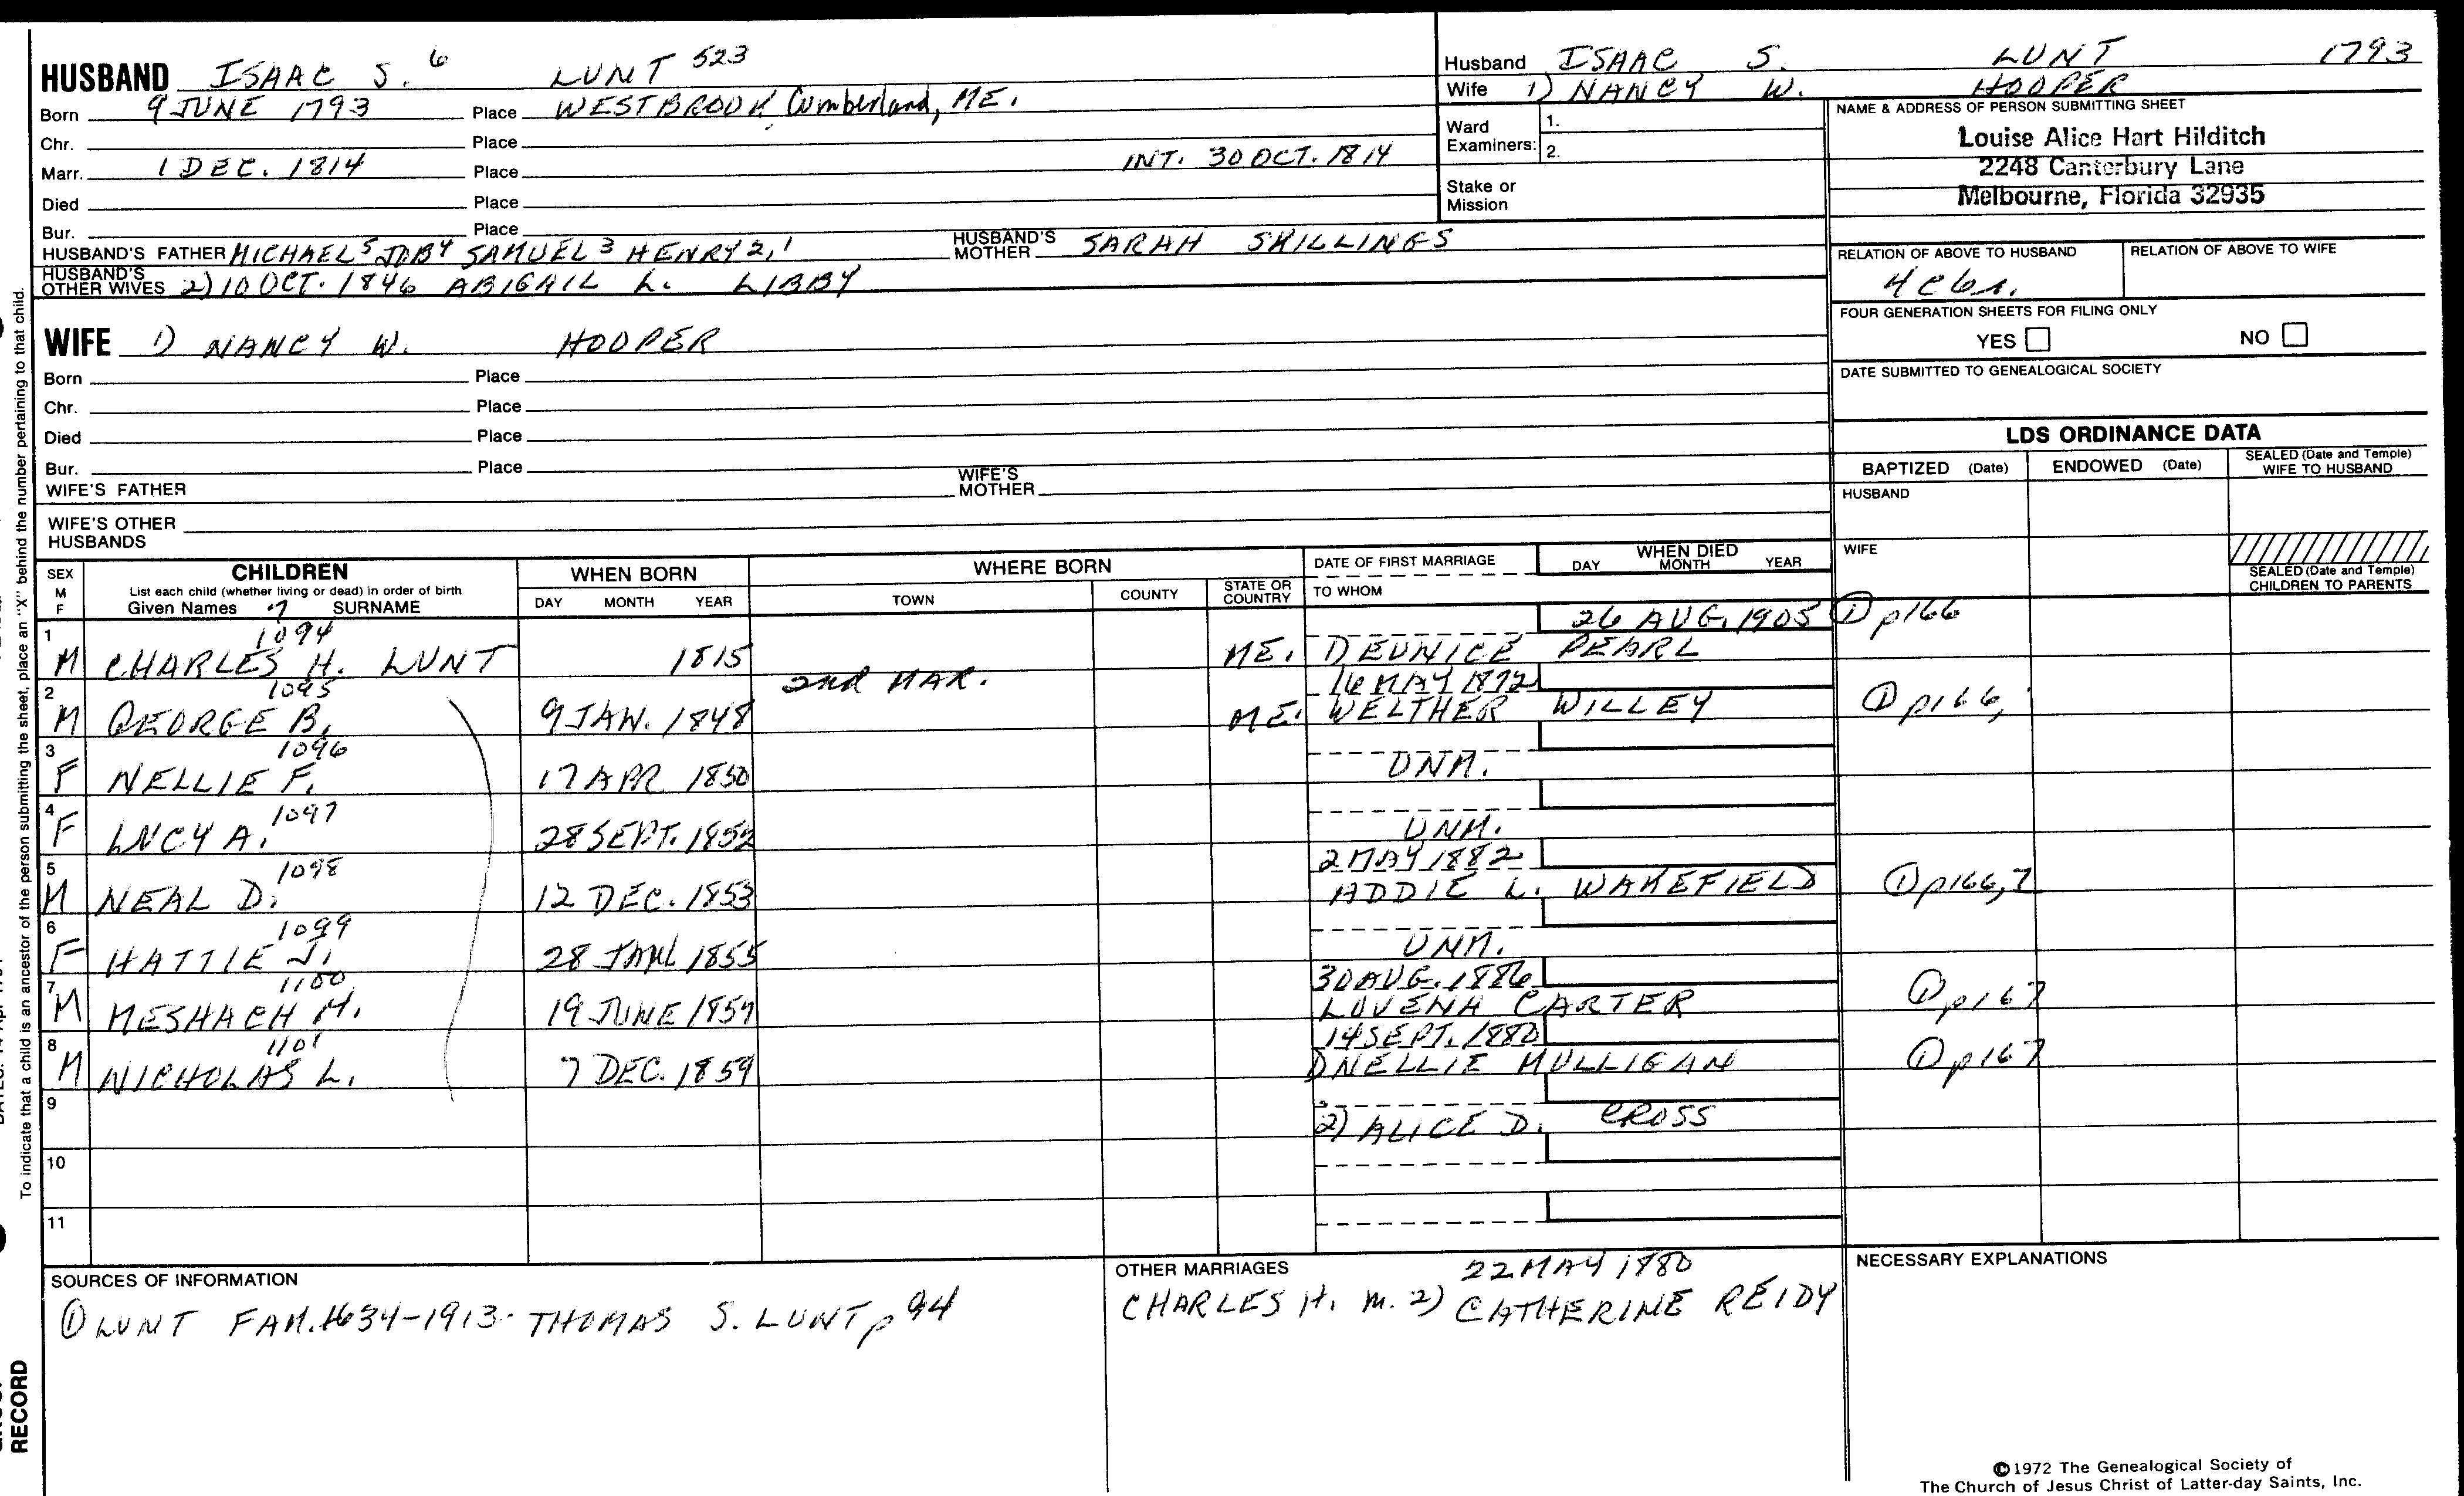 HUSBAND ISAAC S. 6 LUNT 523
Born 9 JUNE 1793 Place WESTBROOK, Cumberland, ME.
Chr. Place
Marr. 1 DEC. 1814 Place INT. 30 OCT. 1814
Died Place
Bur. Place
HUSBAND'S FATHER MICHAEL 5 JOB 4 SAMUEL 3 HENRY 2, 1 HUSBAND'S MOTHER SARAH SKILLINGS
HUSBAND'S OTHER WIVES 2) 10 OCT. 1846 ABIGAIL L. LIBBY
WIFE 1) NANCY W. HOOPER
Born Place
Chr. Place
Died Place
Bur. Place
WIFE'S FATHER WIFE'S MOTHER
WIFE'S OTHER HUSBANDS
Husband ISAAC S. LUNT 1793
Wife 1) NANCY W. HOOPER
Ward Examiners: 1.
2.
Stake or Mission
NAME & ADDRESS OF PERSON SUBMITTING SHEET
Louise Alice Hart Hilditch
2248 Canterbury Lane
Melbourne, Florida 32935
RELATION OF ABOVE TO HUSBAND RELATION OF ABOVE TO WIFE
4 c 6 r.
FOUR GENERATION SHEETS FOR FILING ONLY
YES NO
DATE SUBMITTED TO GENEALOGICAL SOCIETY
LDS ORDINANCE DATA
BAPTIZED (Date) ENDOWED (Date) SEALED (Date and Temple) WIFE TO HUSBAND
HUSBAND
WIFE
SEALED (Date and Temple) CHILDREN TO PARENTS
SEX M F CHILDREN WHEN BORN WHERE BORN DATE OF FIRST MARRIAGE WHEN DIED
List each child (whether living or dead) in order of birth
Given Names 7 SURNAME DAY MONTH YEAR TOWN COUNTY STATE OR COUNTRY TO WHOM DAY MONTH YEAR
1 1094 26 AUG. 1905 ① p166
M CHARLES H. LUNT 1815 ME. 1) EUNICE PEARL
2 1095 2nd MAR. 16 MAY 1872
M GEORGE B. 9 JAN. 1848 ME. WELTHER WILLEY ① p166,
3 1096
F NELLIE F. 17 APR 1850 UNM.
4 1097
F LUCY A. 28 SEPT. 1852 UNM.
5 1098 2 MAY 1882
M NEAL D. 12 DEC. 1853 ADDIE L. WAKEFIELD ① p166,7
6 1099
F HATTIE J. 28 JAN 1855 UNM.
7 1100 30 AUG. 1886
M MESHACH H. 19 JUNE 1857 LOVENA CARTER ① p167
8 1101 14 SEPT. 1880
M NICHOLAS L. 7 DEC. 1859 1) NELLIE MULLIGAN ① p167
9 2) ALICE D. CROSS
10
11
SOURCES OF INFORMATION
① LUNT FAM. 1634-1913- THOMAS S. LUNT, p 94
OTHER MARRIAGES 22 MAY 1880
CHARLES H. m. 2) CATHERINE REIDY
NECESSARY EXPLANATIONS
©1972 The Genealogical Society of
The Church of Jesus Christ of Latter-day Saints, Inc.
To indicate that a child is an ancestor of the person submitting the sheet, place an "X" behind the number pertaining to that child.
RECORD